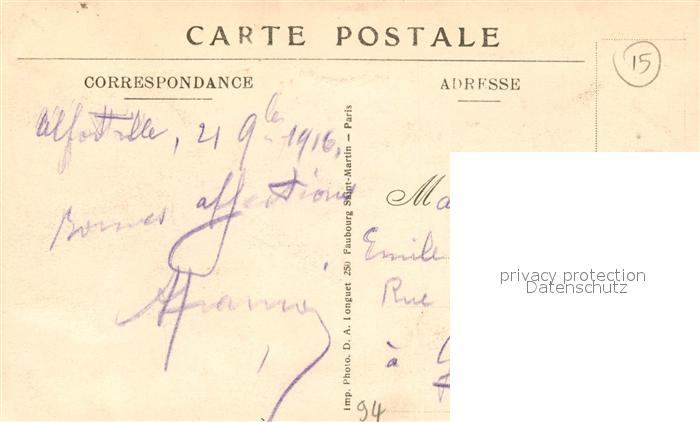 CARTE POSTALE
CORRESPONDANCE
ADRESSE
15
Alfortville, 21 9bre 1916.
Bonnes affections
Imp. Photo. D. A. Longuet 250 Faubourg Saint-Martin – Paris
Ma
Emile
Rue
à
94
privacy protection
Datenschutz